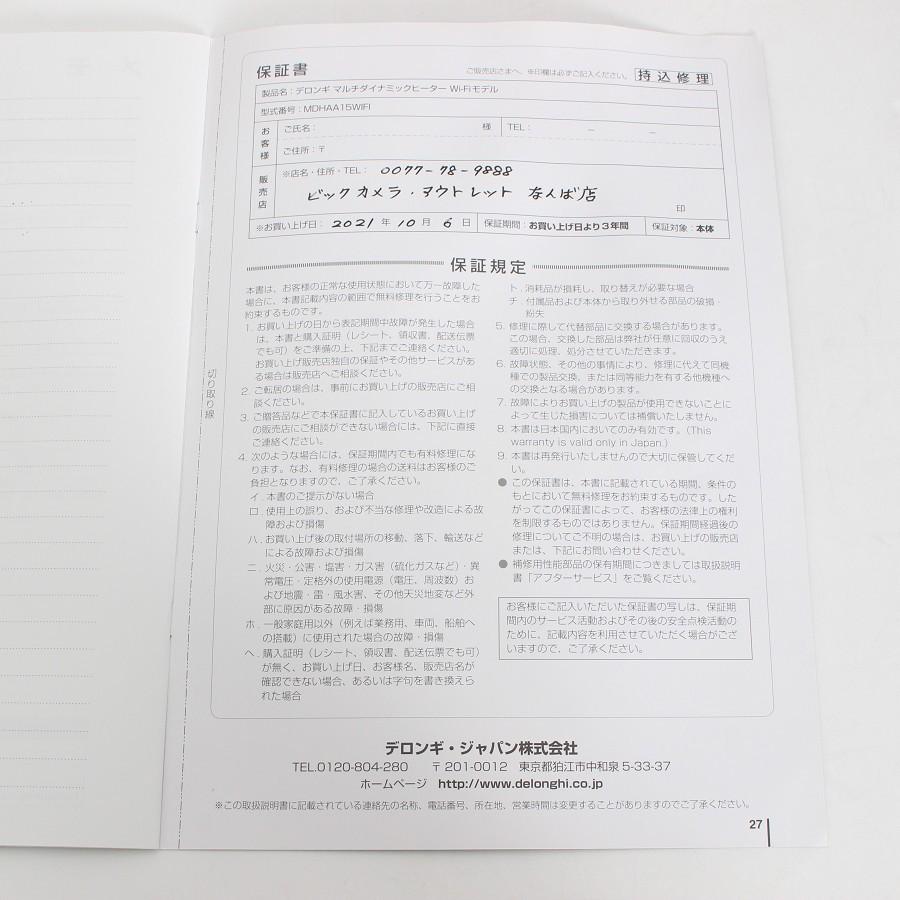 保証書
ご販売店さまへ、※印欄は必ずご記入ください。 持込修理
製品名：デロンギ マルチダイナミックヒーター Wi-Fiモデル
型式番号：MDHAA15WIFI
お客様
ご氏名： 様 TEL： － －
ご住所：〒
販売店
※店名・住所・TEL： 0077-78-9888
ビックカメラ・アウトレット なんば店
印
※お買い上げ日： 2021 年 10 月 6 日 保証期間：お買い上げ日より3年間 保証対象：本体
保証規定
本書は、お客様の正常な使用状態において万一故障した
場合に、本書記載内容の範囲で無料修理を行うことをお
約束するものです。
1. お買い上げの日から表記期間中故障が発生した場合
は、本書と購入証明（レシート、領収書、配送伝票
でも可）をご準備の上、下記までご連絡ください。
お買い上げ販売店独自の保証やその他サービスがあ
る場合は販売店へご相談ください。
2. ご転居の場合は、事前にお買い上げの販売店にご相
談ください。
3. ご贈答品などで本保証書に記入しているお買い上げ
の販売店にご相談ができない場合には、下記に直接
ご連絡ください。
4. 次のような場合には、保証期間内でも有料修理にな
ります。なお、有料修理の場合の送料はお客様のご
負担となりますので、ご了承ください。
イ. 本書のご提示がない場合
ロ. 使用上の誤り、および不当な修理や改造による故
障および損傷
ハ. お買い上げ後の取付場所の移動、落下、輸送など
による故障および損傷
ニ. 火災・公害・塩害・ガス害（硫化ガスなど）・異
常電圧・定格外の使用電源（電圧、周波数）お
よび地震・雷・風水害、その他天災地変など外
部に原因がある故障・損傷
ホ. 一般家庭用以外（例えば業務用、車両、船舶へ
の搭載）に使用された場合の故障・損傷
ヘ. 購入証明（レシート、領収書、配送伝票でも可）
が無く、お買い上げ日、お客様名、販売店名が
確認できない場合、あるいは字句を書き換えら
れた場合
ト. 消耗品が損耗し、取り替えが必要な場合
チ. 付属品および本体から取り外せる部品の破損・
紛失
5. 修理に際して代替部品に交換する場合があります。
この場合、交換した部品は弊社が任意に回収のうえ
適切に処理、処分させていただきます。
6. 故障状態、その他の事情により、修理に代えて同機
種での製品交換、または同等能力を有する他機種へ
の交換となる場合があります。
7. 故障によりお買い上げの製品が使用できないことに
よって生じた損害については補償いたしません。
8. 本書は日本国内においてのみ有効です。(This
warranty is valid only in Japan.)
9. 本書は再発行いたしませんので大切に保管してくだ
い。
● この保証書は、本書に記載されている期間、条件の
もとにおいて無料修理をお約束するものです。した
がってこの保証書によって、お客様の法律上の権利
を制限するものではありません。保証期間経過後の
修理についてご不明の場合は、お買い上げの販売店
または、下記にお問い合わせください。
● 補修用性能部品の保有期間につきましては取扱説明
書「アフターサービス」をご覧ください。
お客様にご記入いただいた保証書の写しは、保証期
間内のサービス活動およびその後の安全点検活動の
ために、記載内容を利用させていただく場合がござ
いますので、ご了承ください。
切り取り線
デロンギ・ジャパン株式会社
TEL.0120-804-280 〒201-0012 東京都狛江市中和泉 5-33-37
ホームページ http://www.delonghi.co.jp
※この取扱説明書に記載されている連絡先の名称、電話番号、所在地、営業時間は変更することがありますのでご了承ください。
27